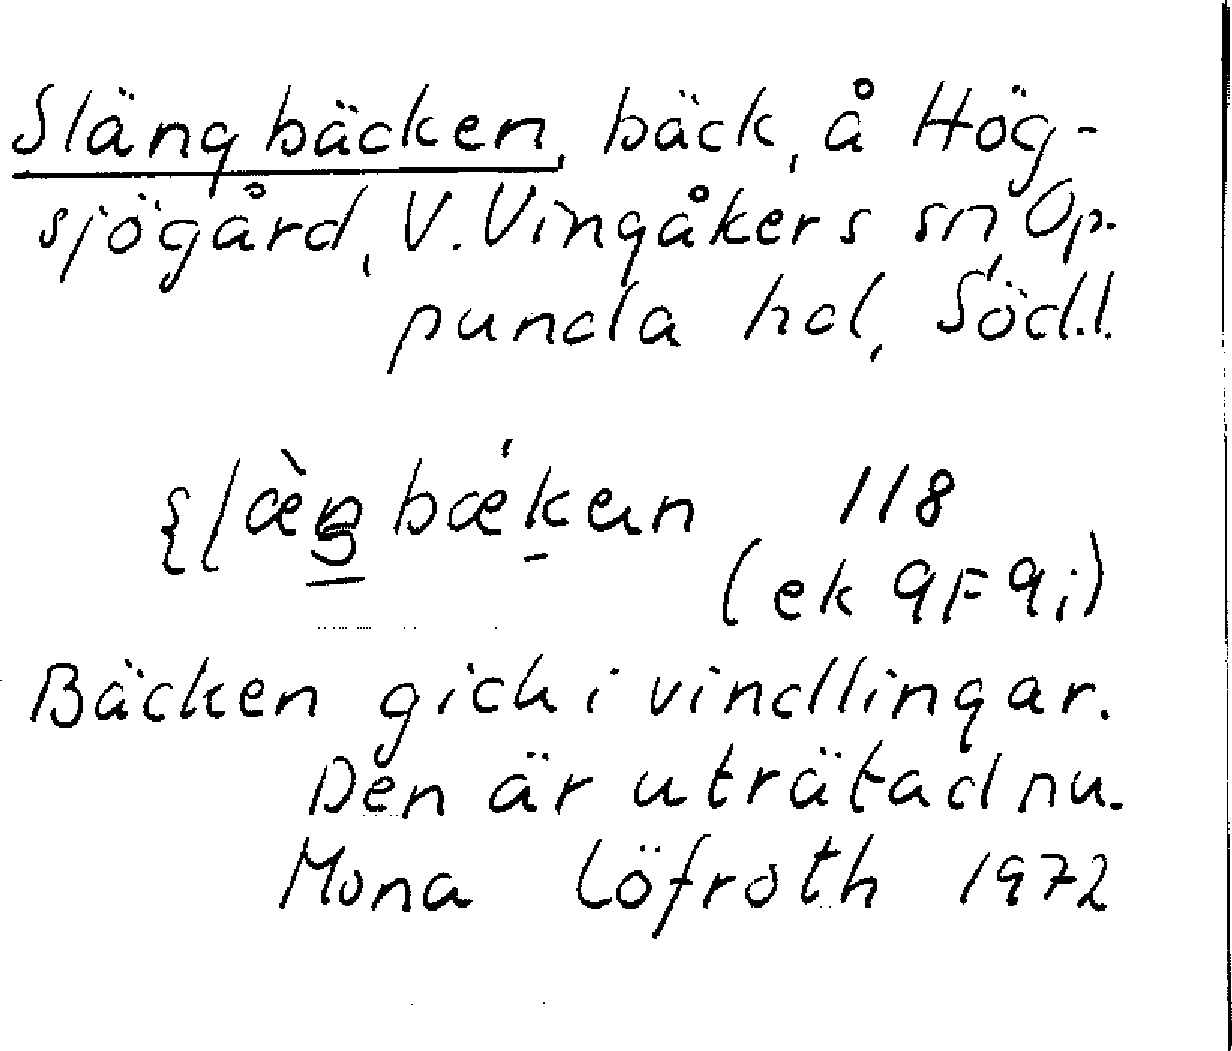 Slängbäcken, bäck, å Hög-
sjögård, V. Vingåkers sn, Op-
punda hd, Södl.
118
(ek 9F9i)
Bäcken gick i vindlingar.
Den är uträtad nu.
Mona Löfroth 1972